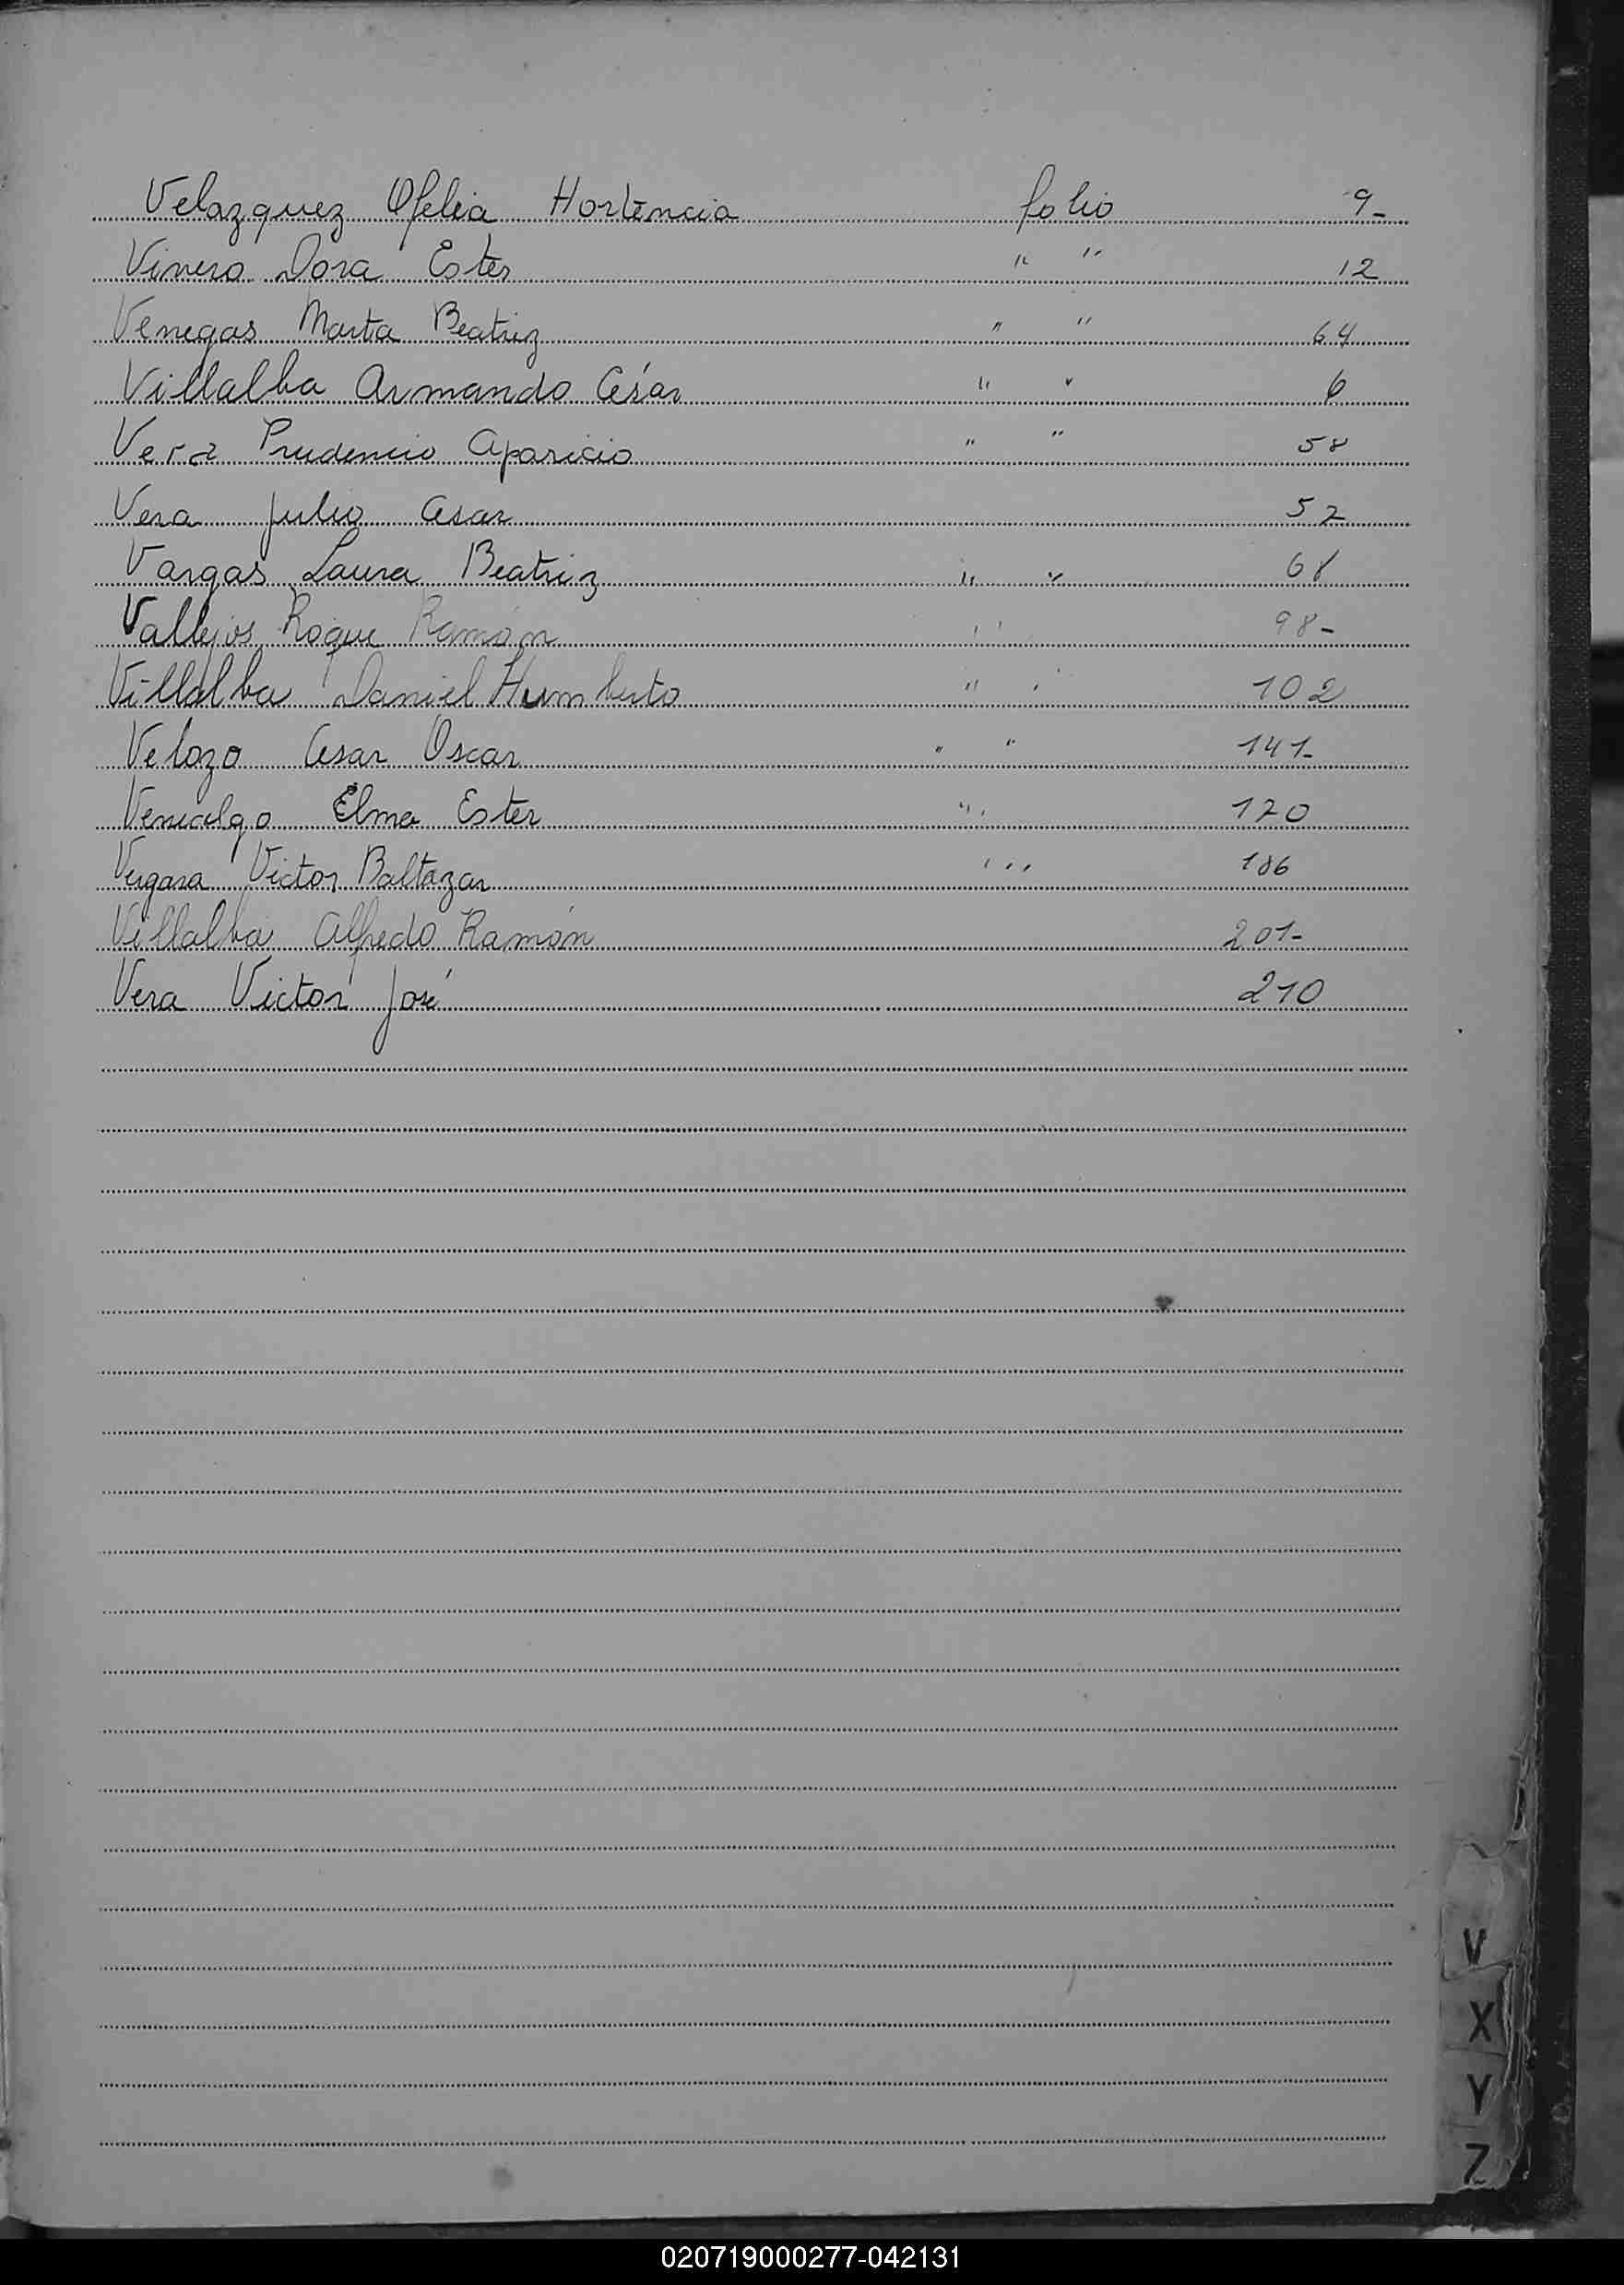 Velazquez Ofelia Hortencia folio 9-
Vivero Dora Ester " " 12
Venegas Marta Beatriz " " 64
Villalba Armando César " " 6
Vera Prudencio Aparicio " " 58
Vera Julio Cesar 52
Vargas Laura Beatriz " " 68
Vallejos Roque Ramón " 98-
Villalba Daniel Humberto " " 102
Velozo Cesar Oscar " " 141-
Venialgo Elma Ester " " 120
Vergara Victor Baltazar " " 186
Villalba Alfredo Ramón 201-
Vera Victor José 210
V
X
Y
Z
020719000277-042131